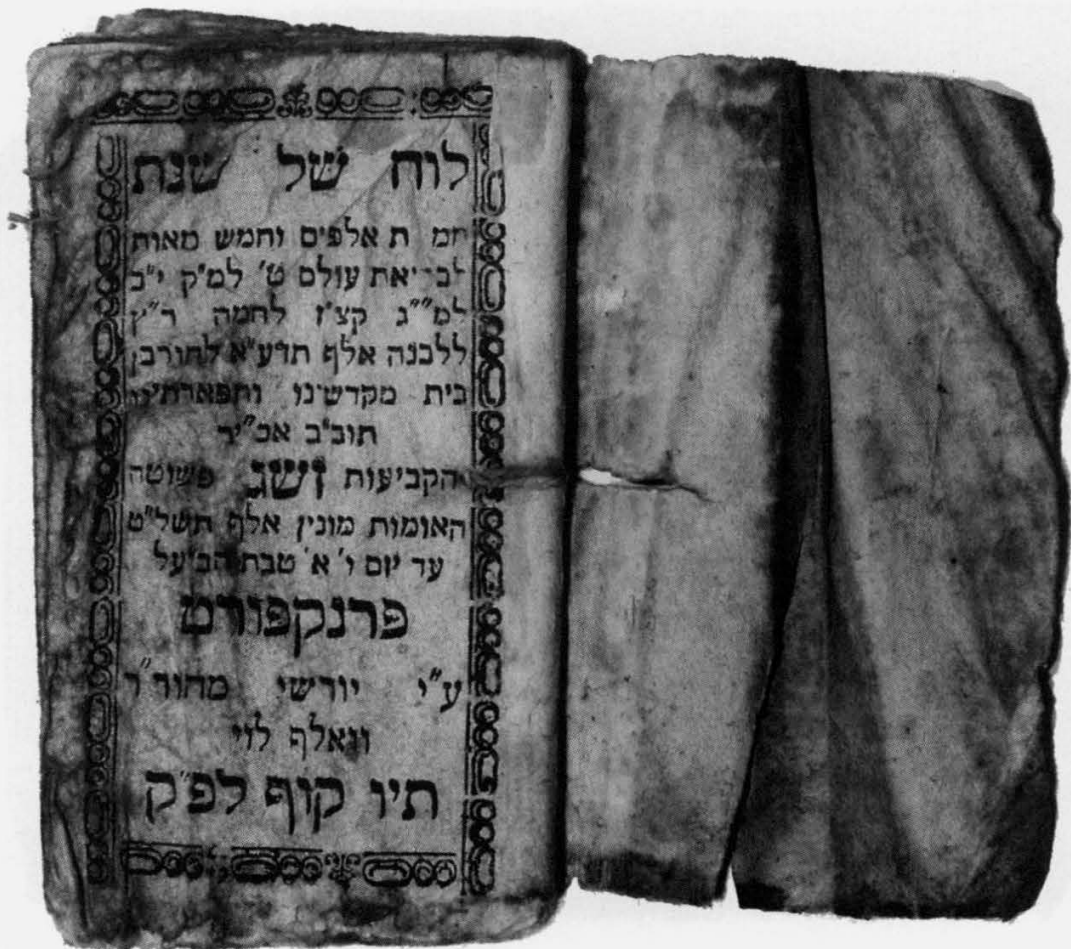 לוח של שנת
חמ ת אלפים וחמש מאות
לבריאת עולם ט' למ"ק י"ב
למ""ג קצ"ז לחמה ר"ץ
ללבנה אלף תדע"א לחורבן
בית מקדשינו ותפארתינו
תוב"ב אכ"יר
הקביעות זשג פשוטה
האומות מונין אלף תשל"ט
עד יום ו' א' טבת הבעל
פרנקפורט
ע"י יורשי מהור"ר
וואלף לוי
תיו קוף לפ"ק